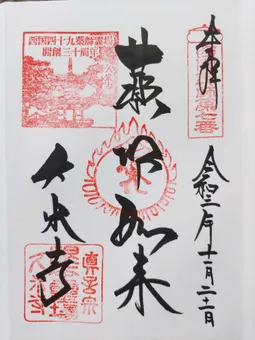 奉拝
令和三年十一月二十一日
薬師如来
西国四十九薬師霊場
開創三十周年
久米寺
真言宗
久米寺